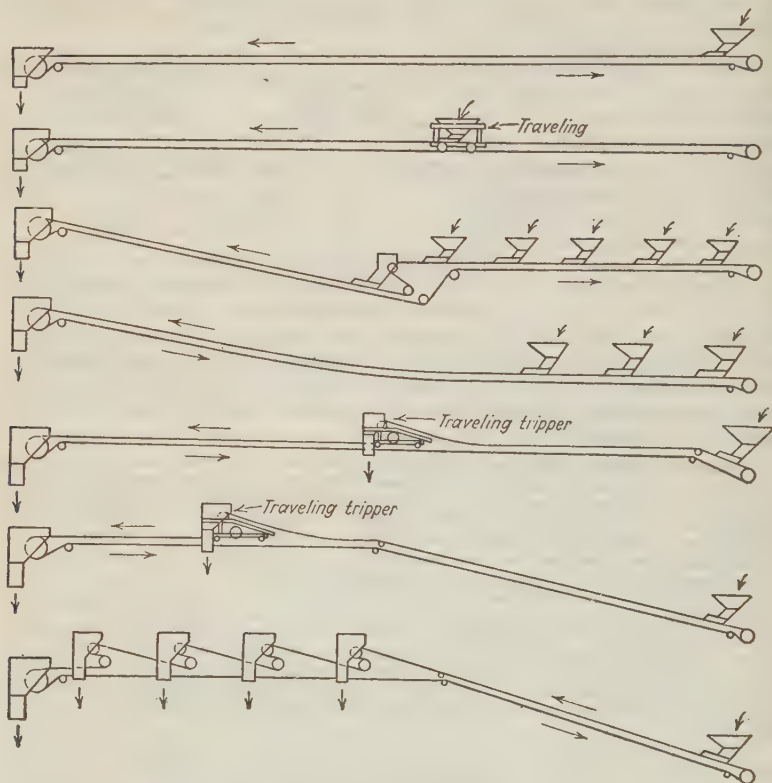 Traveling
Traveling tripper
Traveling tripper